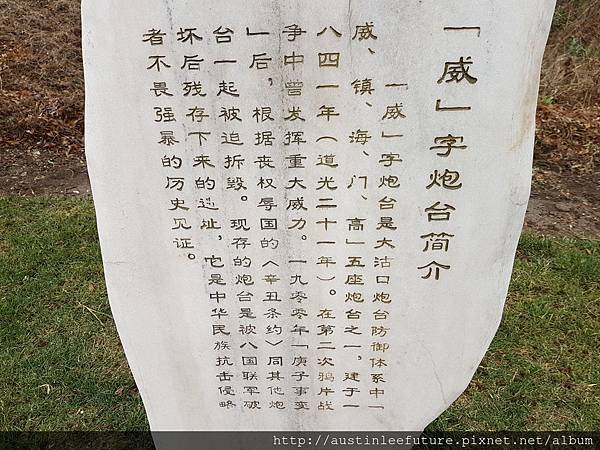 「威」字炮台简介
「威」字炮台是大沽口炮台防御体系中「
威、镇、海、门、高」五座炮台之一，建于一
八四一年（道光二十一年）。在第二次鸦片战
争中曾发挥重大威力。一九零零年「庚子事变
」后，根据丧权辱国的《辛丑条约》同其他炮
台一起被迫拆毁。现存的炮台是被八国联军破
坏后残存下来的遗址，它是中华民族抗击侵略
者不畏强暴的历史见证。
http://austinleefuture.pixnet.net/album